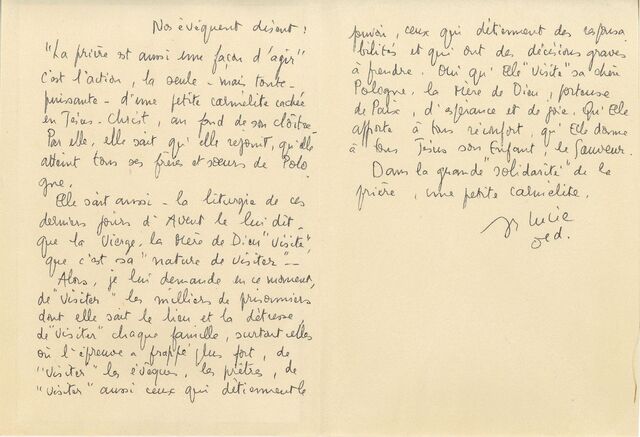 Nos évêques disent :
"La prière est aussi une façon d'agir"
c'est l'action, la seule - mais toute-
puissante - d'une petite carmélite cachée
en Jésus-Christ, au fond de son cloître.
Par elle, elle sait qu'elle rejoint, qu'elle
atteint tous ses frères et sœurs de Polo
gne.
Elle sait aussi - la liturgie de ces
derniers jours d'Avent le lui dit -
que la Vierge, la Mère de Dieu "visite",
que c'est sa "nature de visiter" -
Alors, je lui demande en ce moment,
de "visiter" les milliers de prisonniers
dont elle sait le lieu et la détresse,
de "visiter" chaque famille, surtout celles
où l'épreuve a frappé plus fort, de
"visiter" les évêques, les prêtres, de
"visiter" aussi ceux qui détiennent le
pouvoir, ceux qui détiennent des responsa
bilités et qui ont des décisions graves
à prendre. Oui qu'Elle "visite" sa chère
Pologne, la Mère de Dieu, porteuse
de Paix, d'espérance et de joie. Qu'Elle
apporte à tous réconfort, qu'Elle donne
à tous Jésus son Enfant, le Sauveur.
Dans la grande "solidarité" de la
prière, une petite carmélite.
Sr Lucie
ocd.